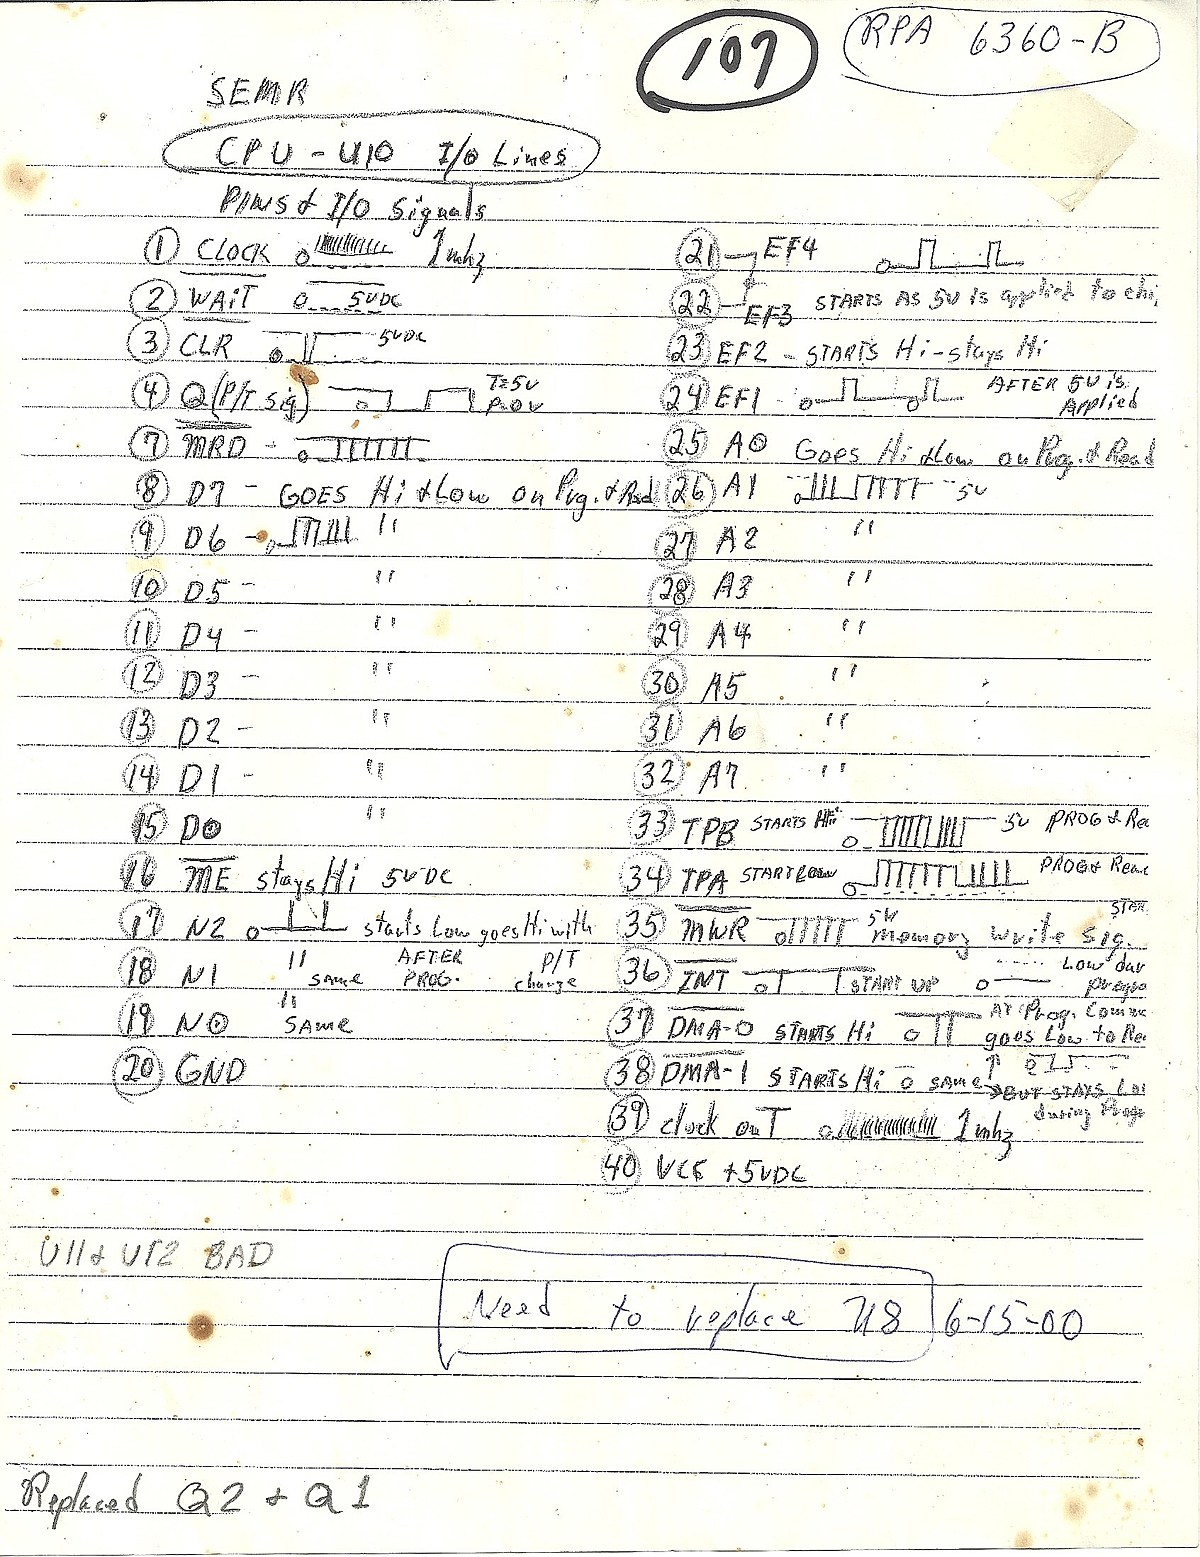 107
RPA 6360-B
SEMR
CPU - U10 I/O Lines
PINS & I/O Signals
1 CLOCK 1mhz
2 WAIT 5VDC
3 CLR 5VDC
4 Q (P/T Sig) T=5V
P=0V
7 MRD -
8 D7 - GOES Hi & Low on Prg. & Read
9 D6 - "
10 D5 - "
11 D4 - "
12 D3 - "
13 D2 - "
14 D1 - "
15 D0 "
16 ME stays Hi 5VDC
17 N2 starts Low goes Hi with
18 N1 " same AFTER PROG. P/T change
19 N0 " SAME
20 GND
21 EF4
22 EF3 STARTS AS 5V is applied to chi
23 EF2 - STARTS Hi - stays Hi
24 EF1 - AFTER 5V is Applied
25 A0 Goes Hi & Low on Prog. & Read
26 A1 5V
27 A2 "
28 A3 "
29 A4 "
30 A5 "
31 A6 "
32 A7 "
33 TPB STARTS Hi 5V PROG & Rea
34 TPA START Low PROG & Read
35 MWR 5V Memory Write Sig. STAR
36 INT START UP Low dur
progra
37 DMA-0 STARTS Hi AT Prog. Comm
goes Low to Re
38 DMA-1 STARTS Hi SAME
BUT STAYS Lo
during Prog
39 clock ouT 1mhz
40 VCC +5VDC
U11 & U12 BAD
Need to replace U8 6-15-00
Replaced Q2 & Q1